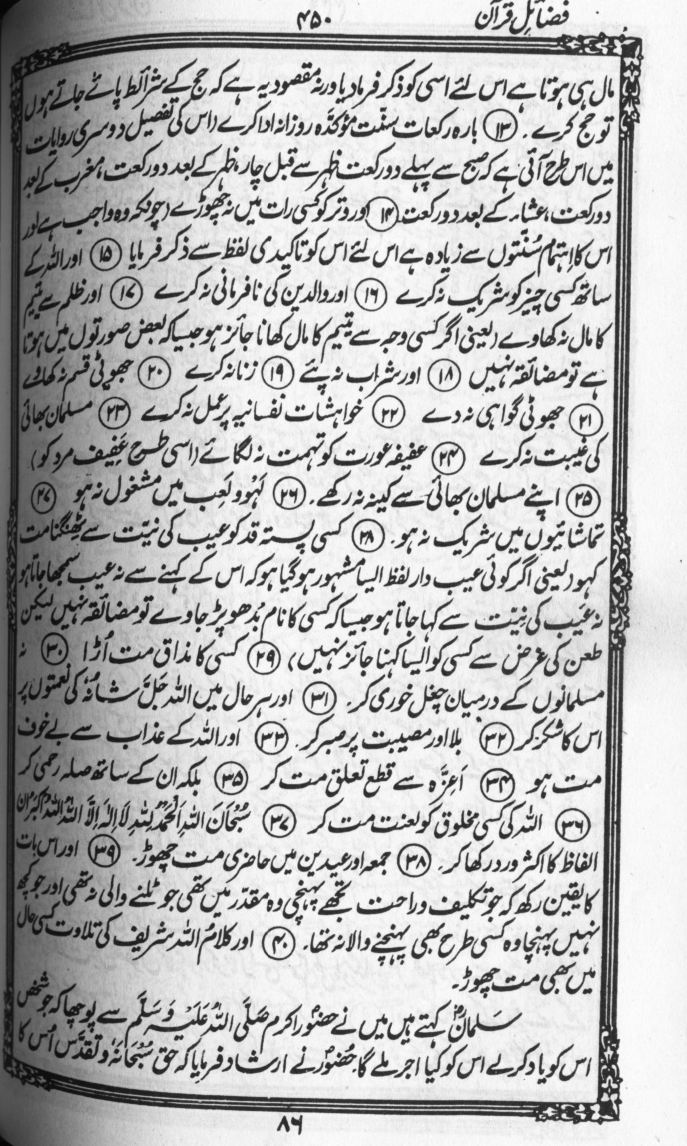 فضائلِ قرآن
۴۵۰
مال ہی ہوتا ہے اس لئے اسی کو ذکر فرما دیا ورنہ مقصود یہ ہے کہ حج کے شرائط پائے جاتے ہوں
تو حج کرے ۔ (۱۳) بارہ رکعات سنّت مؤکدہ روزانہ ادا کرے (اس کی تفصیل دوسری روایات
میں اس طرح آئی ہے کہ صبح سے پہلے دو رکعت ظہر سے قبل چار، ظہر کے بعد دو رکعت، مغرب کے بعد
دو رکعت، عشاء کے بعد دو رکعت (۱۴) اور وتر کو کسی رات میں نہ چھوڑے (چونکہ وہ واجب ہے اور
اس کا اہتمام سُنّتوں سے زیادہ ہے اس لئے اس کو تاکیدی لفظ سے ذکر فرمایا (۱۵) اور اللہ کے
ساتھ کسی چیز کو شریک نہ کرے (۱۶) اور والدین کی نافرمانی نہ کرے (۱۷) اور ظلم سے یتیم
کا مال نہ کھاوے (یعنی اگر کسی وجہ سے یتیم کا مال کھانا جائز ہو جیسا کہ بعض صورتوں میں ہوتا
ہے تو مضائقہ نہیں (۱۸) اور شراب نہ پئے (۱۹) زنا نہ کرے (۲۰) جھوٹی قسم نہ کھاوے
(۲۱) جھوٹی گواہی نہ دے (۲۲) خواہشات نفسانیہ پر عمل نہ کرے (۲۳) مسلمان بھائی
کی غیبت نہ کرے (۲۴) عفیفہ عورت کو تہمت نہ لگائے (اسی طرح عَفِیف مرد کو)
(۲۵) اپنے مسلمان بھائی سے کینہ نہ رکھے ۔ (۲۶) لَہو و لَعِب میں مشغول نہ ہو (۲۷)
تماشائیوں میں شریک نہ ہو ۔ (۲۸) کسی پستہ قد کو عیب کی نیّت سے ٹھِنگنا مت
کہو (یعنی اگر کوئی عیب دار لفظ ایسا مشہور ہو گیا ہو کہ اس کے کہنے سے نہ عیب سمجھا جاتا ہو
نہ عَیب کی نِیّت سے کہا جاتا ہو جیسا کہ کسی کا نام بُدھو پڑ جاوے تو مضائقہ نہیں لیکن
طعن کی غرض سے کسی کو ایسا کہنا جائز نہیں) (۲۹) کسی کا مذاق مت اُڑا (۳۰) نہ
مسلمانوں کے درمیان چغل خوری کر ۔ (۳۱) اور ہر حال میں اللہ جَلَّ شانُہٗ کی نعمتوں پر
اس کا شکر کر (۳۲) بلا اور مصیبت پر صبر کر ۔ (۳۳) اور اللہ کے عذاب سے بے خوف
مت ہو (۳۴) اعِزّہ سے قطع تعلق مت کر (۳۵) بلکہ ان کے ساتھ صلہ رحمی کر
(۳۶) اللہ کی کسی مخلوق کو لعنت مت کر (۳۷) سُبْحَانَ اللہِ اَلْحَمْدُ لِلّٰہِ لَا اِلٰہَ اِلَّا اللہُ اَللہُ اَکْبَر ان
الفاظ کا اکثر ورد رکھا کر ۔ (۳۸) جمعہ اور عیدین میں حاضری مت چھوڑ ۔ (۳۹) اور اس بات
کا یقین رکھ کہ جو تکلیف و راحت تجھے پہنچی وہ مقدّر میں تھی جو ٹلنے والی نہ تھی اور جو کچھ
نہیں پہنچا وہ کسی طرح بھی پہنچنے والا نہ تھا ۔ (۴۰) اور کلامُ اللہ شریف کی تلاوت کسی حال
میں بھی مت چھوڑ ۔
سَلمانؓ کہتے ہیں میں نے حضورِ اکرم صَلَّی اللہُ عَلَیْہِ وَسَلَّم سے پوچھا کہ جو شخص
اس کو یاد کر لے اس کو کیا اجر ملے گا حضورؐ نے ارشاد فرمایا کہ حق سُبْحَانَہٗ وَتَقَدُّس اُس کا
۸۶